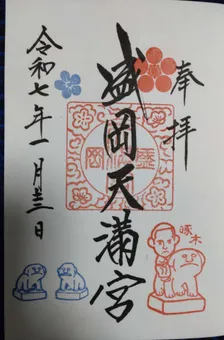 奉拝
盛岡天満宮
令和七年一月
日
啄木